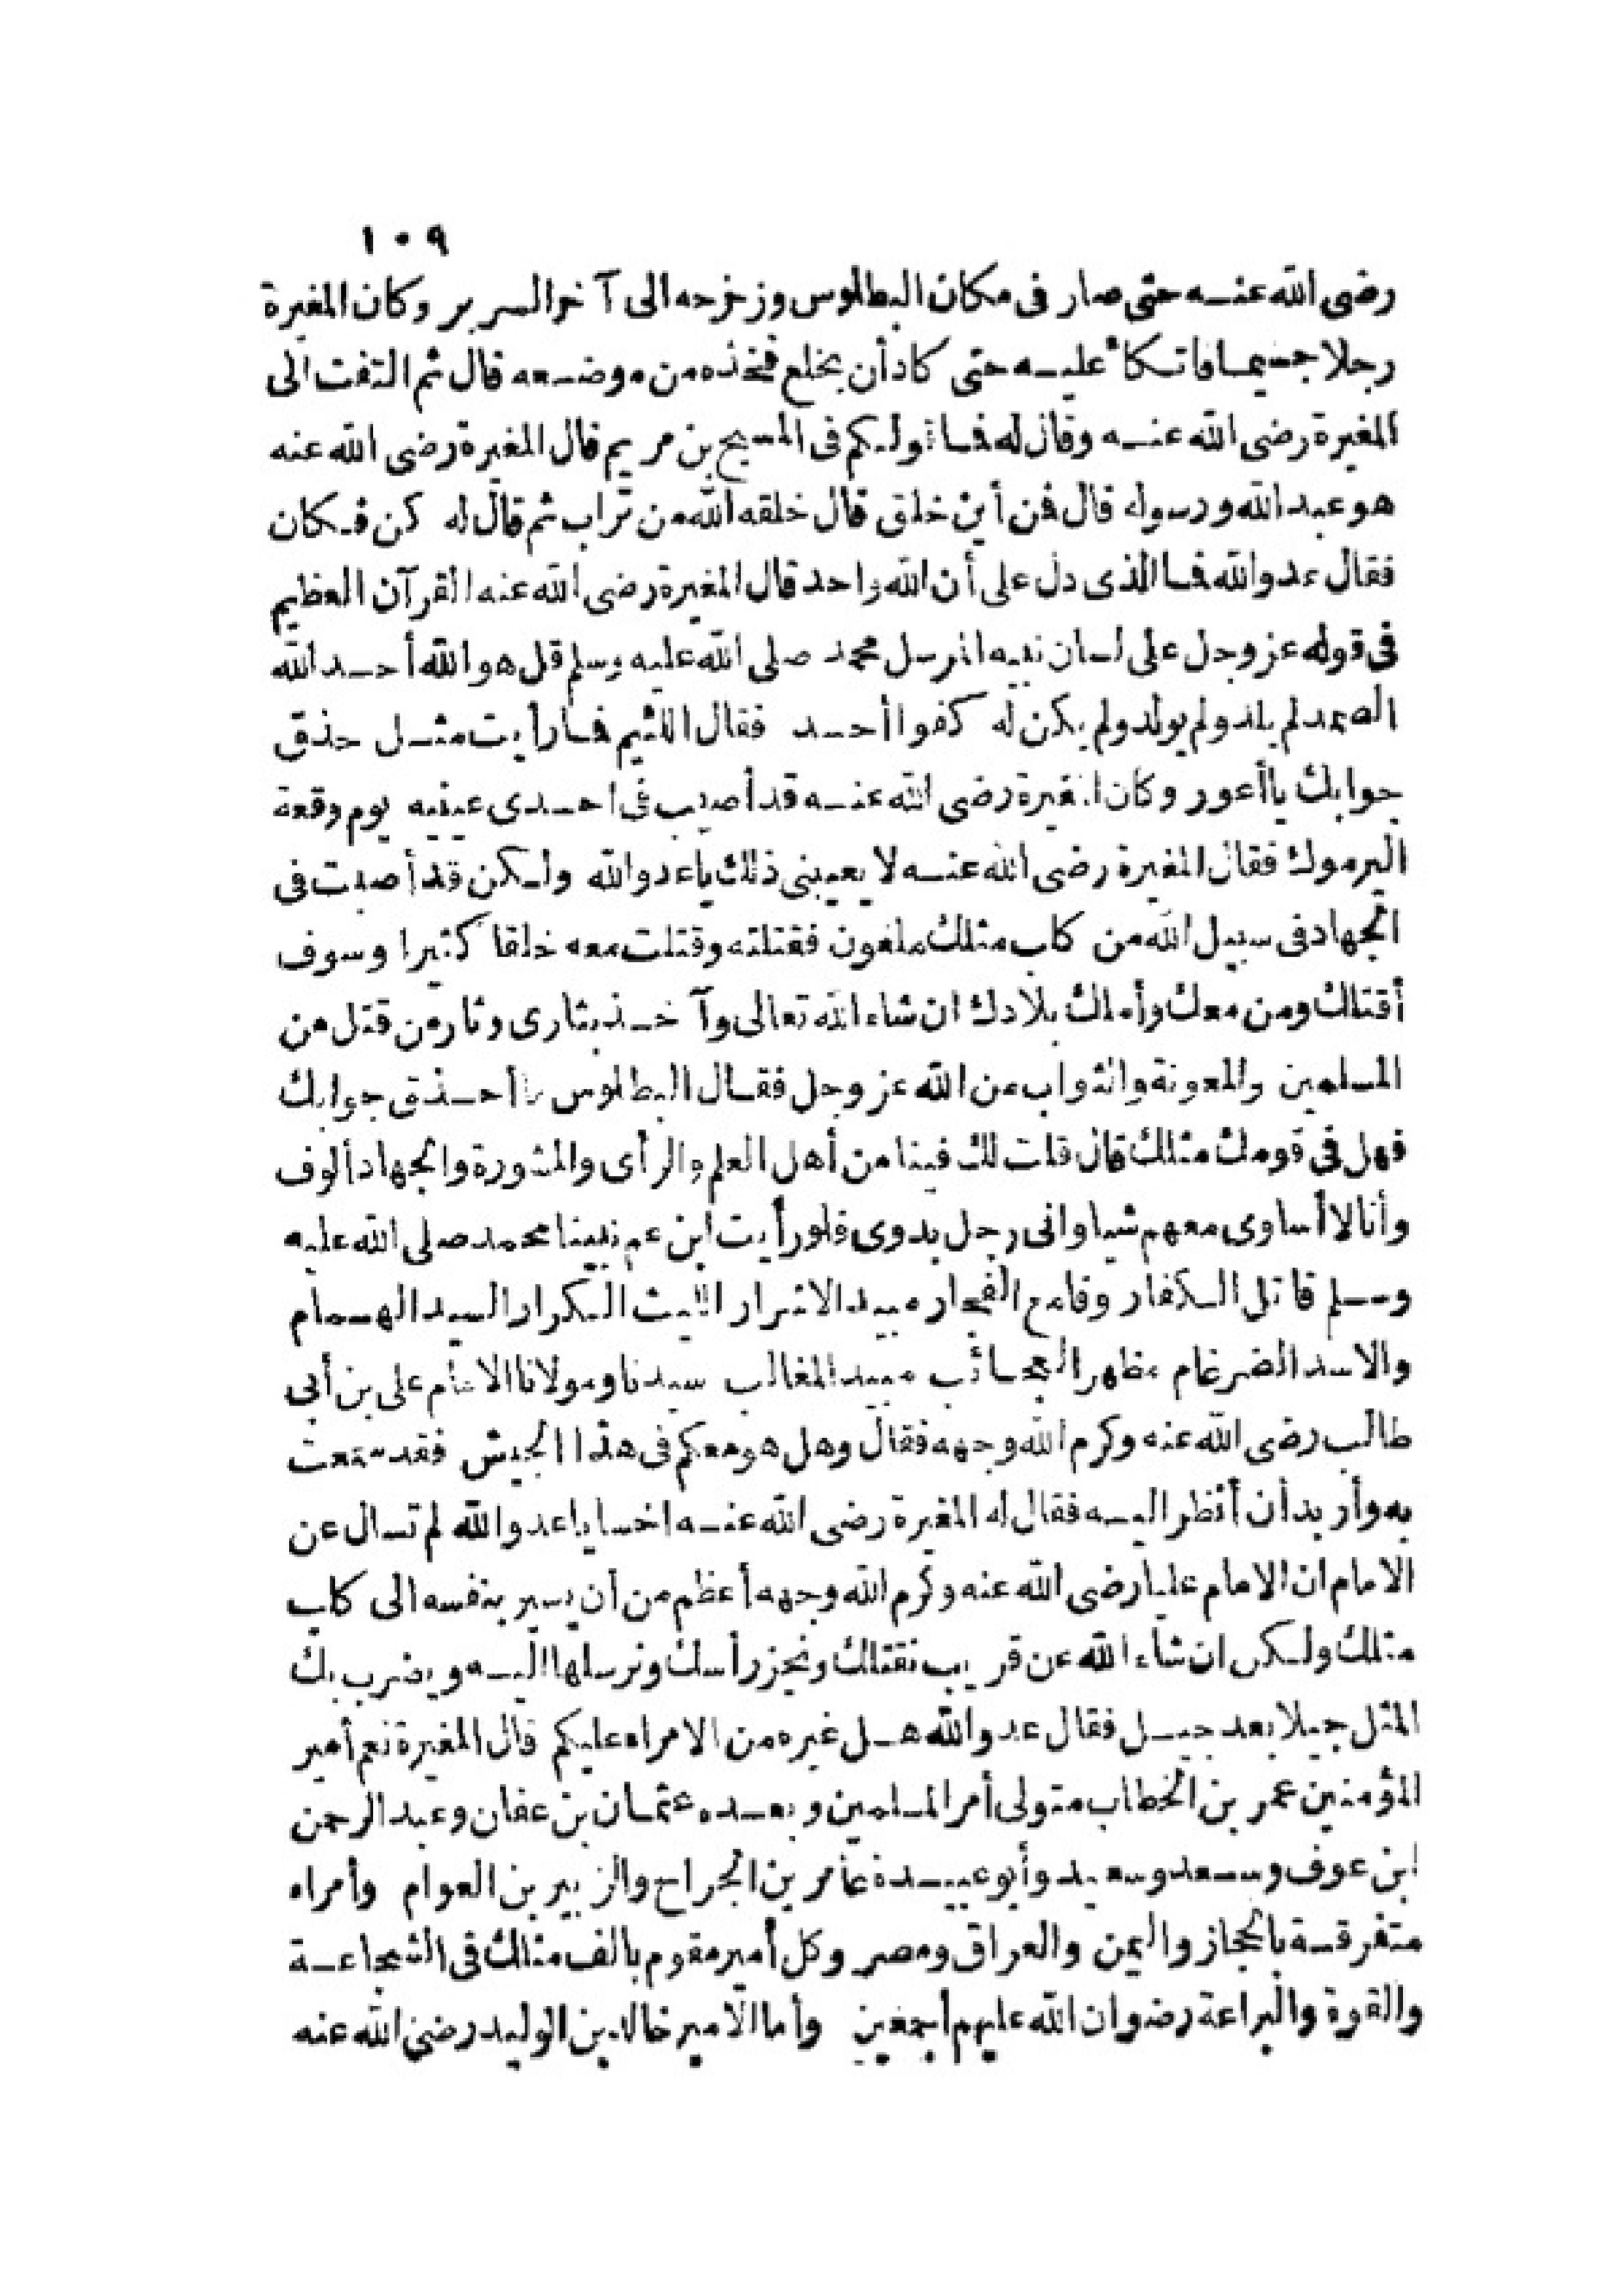 ١٠٩
رضى الله عنه حتى صار فى مكان البطلوس وزخرحه الى آخر السرير وكان المغيرة
رجلا جسيما فاتكأ عليه حتى كاد أن يخلع فخذه من موضعه قال ثم التفت الى
المغيرة رضى الله عنه وقال له فما تولكم فى المسيح بن مريم قال المغيرة رضى الله عنه
هو عبد الله ورسوله قال فمن أين خلق قال خلقه الله من تراب ثم قال له كن فكان
فقال عدو الله فما الذى دل على أن الله واحد قال المغيرة رضى الله عنه القرآن العظيم
فى قوله عز وجل على لسان نبيه المرسل محمد صلى الله عليه وسلم قل هو الله أحد الله
الصمد لم يلد ولم يولد ولم يكن له كفوا أحد فقال اللئيم فما رأيت مثل حذق
جوابك يا أعور وكان المغيرة رضى الله عنه قد أصيب فى احدى عينيه يوم وقعة
اليرموك فقال المغيرة رضى الله عنه لا يعيبنى ذلك يا عدو الله ولكن قد أصبت فى
الجهاد فى سبيل الله من كلب مثلك ملعون فقتلته وقتلت معه خلقا كثيرا وسوف
أقتلك ومن معك وأملك بلادك ان شاء الله تعالى وآخذ بثارى وثار من قتل من
المسلمين والمعونة والثواب من الله عز وجل فقال البطلوس ما أحذق جوابك
فهل فى قومك مثلك قال قلت لك فينا من أهل العلم والرأى والمشورة والجهاد ألوف
وأنا لا أساوى معهم شيا وانى رجل بدوى فلو رأيت ابن عم نبينا محمد صلى الله عليه
وسلم قاتل الكفار وقامع الفجار مبيد الاشرار الليث الكرار السيد الهمام
والاسد الضرغام مظهر العجائب مبيد المغالب سيدنا ومولانا الامام على بن أبى
طالب رضى الله عنه وكرم الله وجهه فقال وهل هو معكم فى هذا الجيش فقد سمعت
به وأريد أن أنظر اليه فقال له المغيرة رضى الله عنه اخسا يا عدو الله لم تسال عن
الامام ان الامام عليا رضى الله عنه وكرم الله وجهه أعظم من أن يسير بنفسه الى كلب
مثلك ولكن ان شاء الله عن قريب نقتلك ونحز رأسك ونرسلها اليه ويضرب بك
المثل جيلا بعد جيل فقال عدو الله هل غيره من الامراء عليكم قال المغيرة نعم أمير
المؤمنين عمر بن الخطاب متولى أمر المسلمين وبعده عثمان بن عفان وعبد الرحمن
ابن عوف وسعد وسعيد وأبو عبيدة عامر بن الجراح والزبير بن العوام وأمراء
متفرقة بالحجاز واليمن والعراق ومصر وكل أمير مقوم بالف مثلك فى الشجاعة
والقوة والبراعة رضوان الله عليهم أجمعين وأما الامير خالد بن الوليد رضى الله عنه